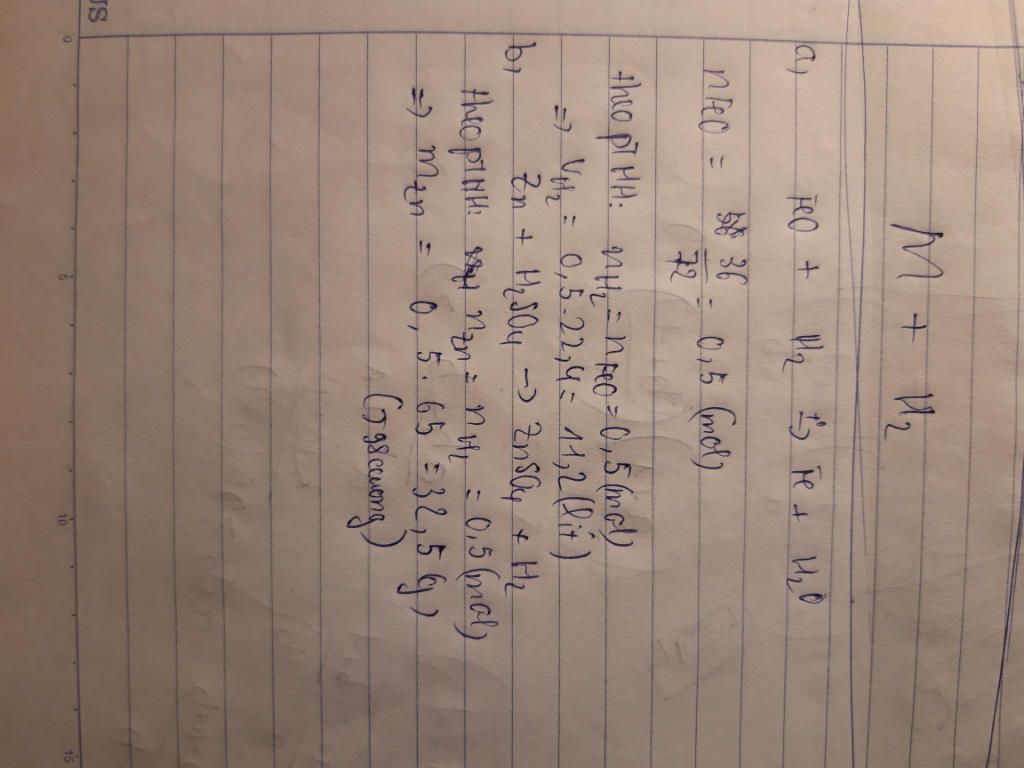 M + H2
a, FeO + H2 t°→ Fe + H2O
nFeO = 36/72 = 0,5 (mol)
theo ptHH: nH2 = nFeO = 0,5 (mol)
⇒ VH2 = 0,5.22,4 = 11,2 (lít)
b, Zn + H2SO4 → ZnSO4 + H2
theo ptHH: nZn = nH2 = 0,5 (mol)
⇒ mZn = 0,5.65 = 32,5 (g)
0 5 10 15